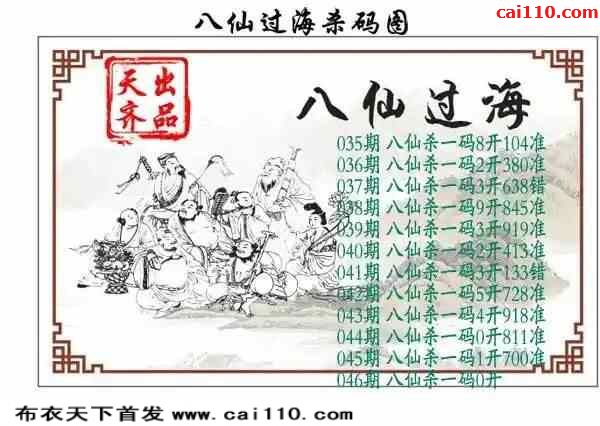 八仙过海杀码图
cai110.com
天齐
出品
八仙过海
035期 八仙杀一码8开104准
036期 八仙杀一码2开380准
037期 八仙杀一码3开638错
038期 八仙杀一码9开845准
039期 八仙杀一码3开919准
040期 八仙杀一码2开413准
041期 八仙杀一码3开133错
042期 八仙杀一码5开728准
043期 八仙杀一码4开918准
044期 八仙杀一码0开811准
045期 八仙杀一码1开700准
046期 八仙杀一码0开
布衣天下首发 www.cai110.com